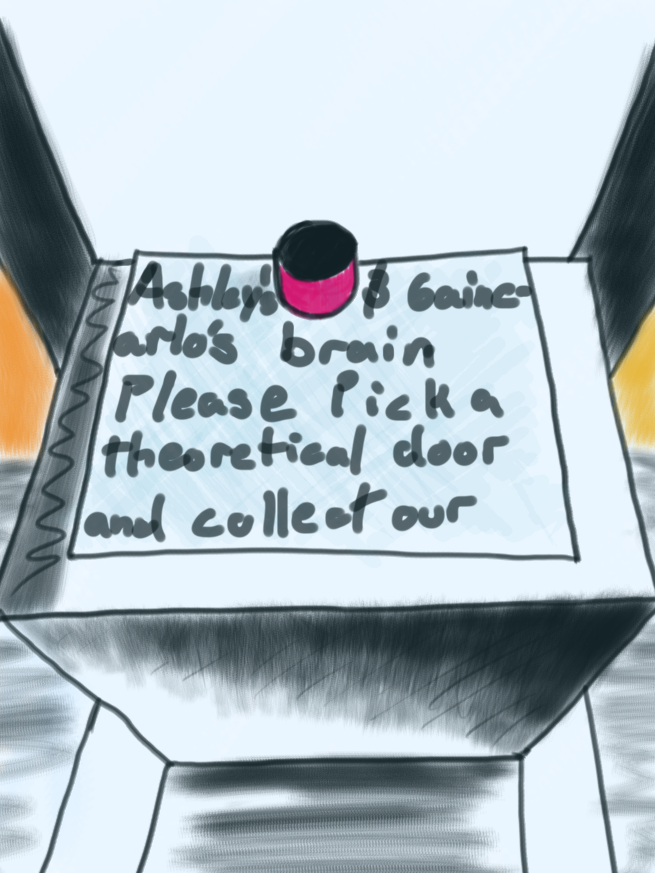 Ashley's & Gainc-
arlo's brain
Please Pick a
theoretical door
and collect our